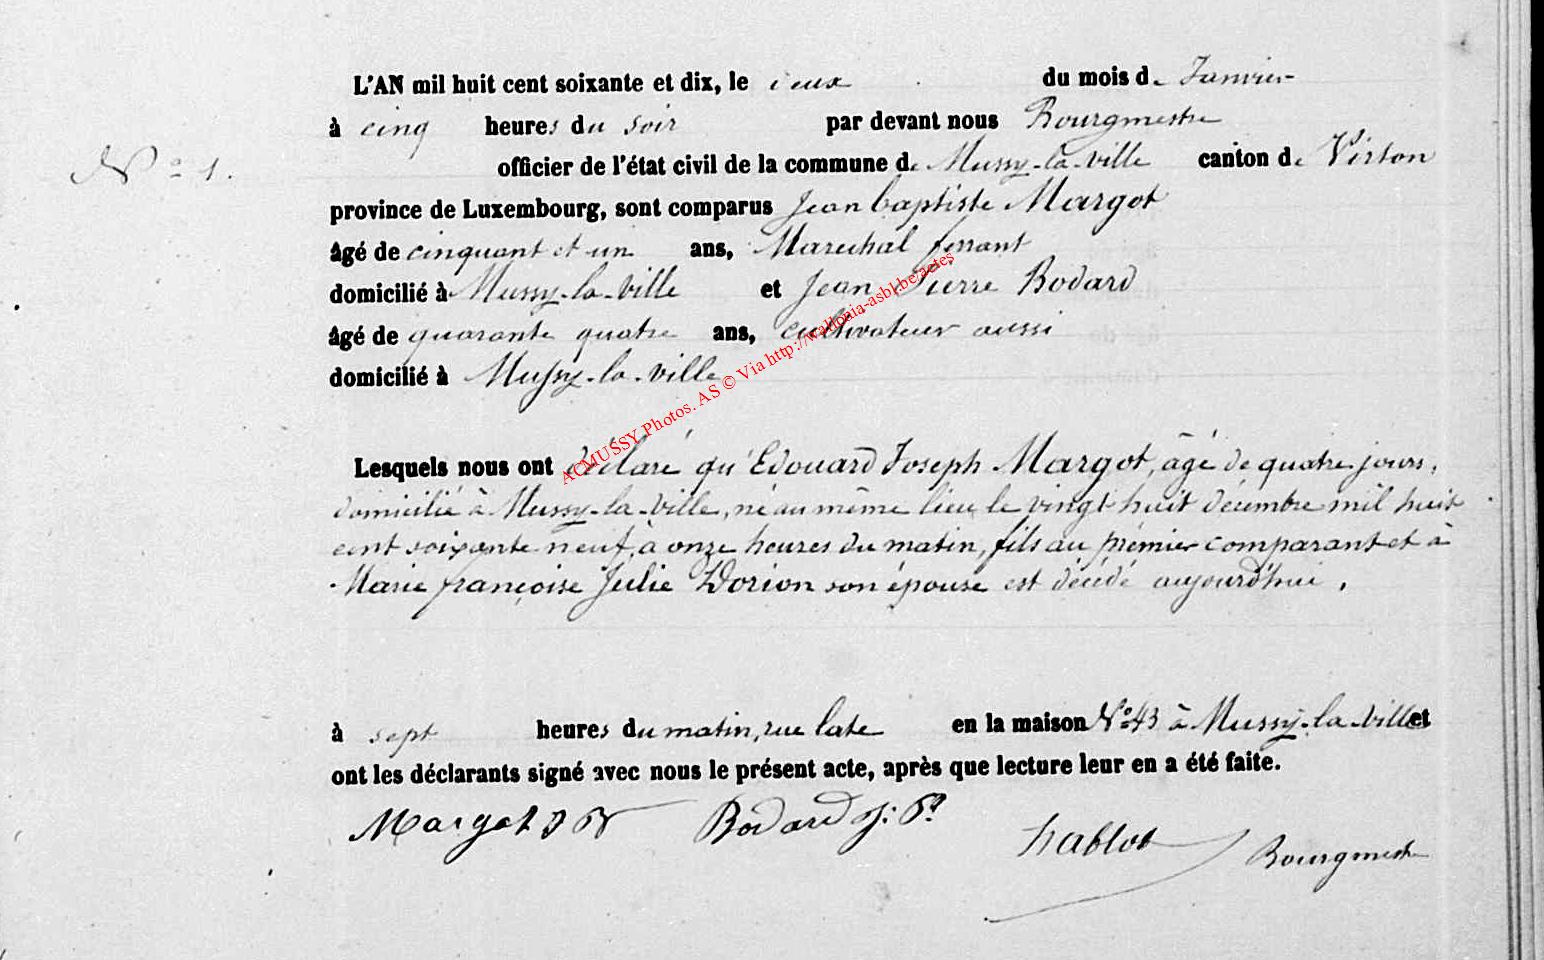 L'AN mil huit cent soixante et dix, le deux du mois de Janvier
à cinq heures du soir par devant nous Bourgmestre
N° 1. officier de l'état civil de la commune de Mussy-la-ville canton de Virton
province de Luxembourg, sont comparus Jean baptiste Margot
âgé de cinquant et un ans, Marechal ferrant
domicilié à Mussy-la-ville et Jean Pierre Bodard
âgé de quarante quatre ans, cultivateur aussi
domicilié à Mussy-la-ville
ACMUSSY Photos. AS © Via http://wallonia-asbl.be/actes
Lesquels nous ont déclaré qu'Edouard Joseph Margot, âgé de quatre jours,
domicilié à Mussy-la-ville, né au même lieu le vingt huit décembre mil huit
cent soixante neuf, à onze heures du matin, fils du prémier comparant et à
Marie françoise Julie Dorion son épouse est décédé aujourd'hui,
à sept heures du matin, rue late en la maison N° 43 à Mussy-la-ville et
ont les déclarants signé avec nous le présent acte, après que lecture leur en a été faite.
Margot J B Bodard J: P. hablot Bourgmestre